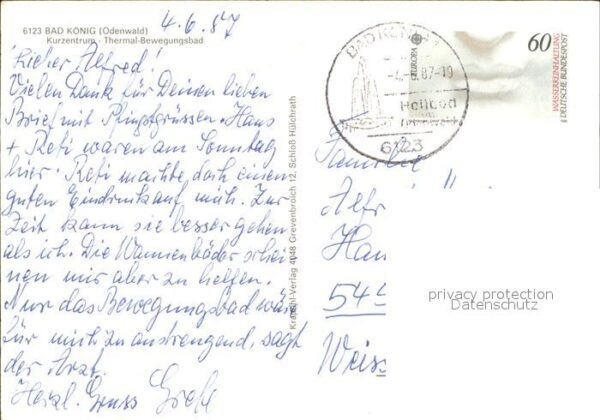 4.6.87
6123 BAD KÖNIG (Odenwald)
Kurzentrum · Thermal-Bewegungsbad
Lieber Alfred!
Vielen Dank für Deinen lieben
Brief mit Pfingstgrüssen. Hans
+ Resi waren am Sonntag
hier. Resi machte doch einen
guten Eindruck auf mich. Zur
Zeit kann sie besser gehen
als ich. Die Wannenbäder schei-
nen mir aber zu helfen.
Nur das Bewegungsbad wäre
für mich zu anstrengend, sagt
der Arzt.
Herzl. Gruss
Krapohl-Verlag 4048 Grevenbroich 12, Schloß Hülchrath
BAD KÖNIG
-4.6.87-19
Heilbad
6123
EUROPA
60
WASSERREINHALTUNG
DEUTSCHE BUNDESPOST
Familie
Alfr
Han
54
Weis
privacy protection
Datenschutz